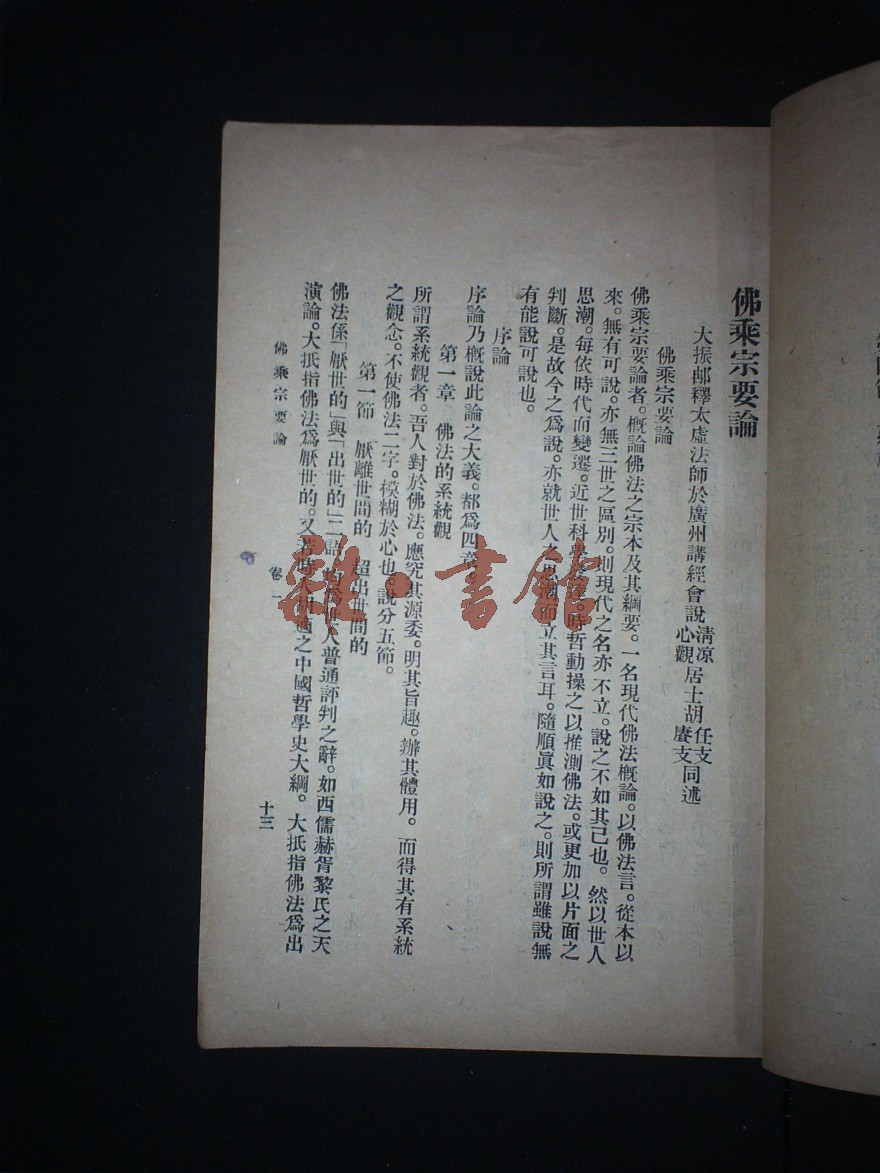 佛乘宗要論
大振邮釋太虛法師於廣州講經會說清凉居士胡任支
心觀 賡支同述
佛乘宗要論
佛乘宗要論者。概論佛法之宗本及其綱要。一名現代佛法概論。以佛法言。從本以
來。無有可說。亦無三世之區別。則現代之名亦不立。說之不如其已也。然以世人
思潮。每依時代而變遷。近世科學 時哲動操之以推測佛法。或更加以片面之
判斷。是故今之爲說。亦就世人之思潮而立其言耳。隨順眞如說之。則所謂雖說無
有能說可說也。
序論
序論乃概說此論之大義。都爲四章。
第一章 佛法的系統觀
所謂系統觀者。吾人對於佛法。應究其源委。明其旨趣。辦其體用。而得其有系統
之觀念。不使佛法二字。模糊於心也。說分五節。
第一節 厭離世間的 超出世間的
佛法係「厭世的」與「出世的」二語。 人普通評判之辭。如西儒赫胥黎氏之天
演論。大抵指佛法爲厭世的。又若 適之中國哲學史大綱。大抵指佛法爲出
佛乘宗要論 卷一 十三
雜·書館